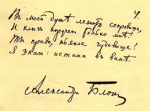 Въ моей душѣ лежитъ сокровище,
И ключъ порученъ только мнѣ.
Ты право, пьяное чудовище!
Я знаю: истина въ винѣ.
Александръ Блокъ